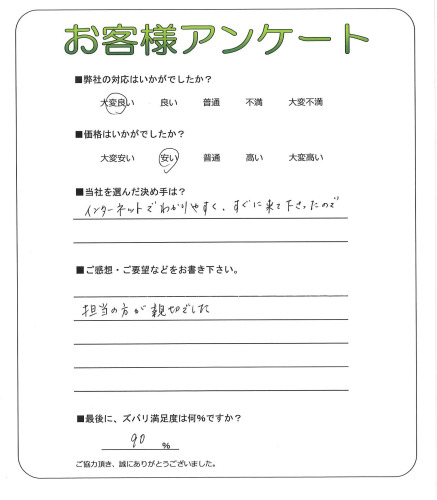 お客様アンケート
■弊社の対応はいかがでしたか？
大変良い 良い 普通 不満 大変不満
■価格はいかがでしたか？
大変安い 安い 普通 高い 大変高い
■当社を選んだ決め手は？
インターネットでわかりやすく、すぐに来て下さったので
■ご感想・ご要望などをお書き下さい。
担当の方が親切でした
■最後に、ズバリ満足度は何%ですか？
90 %
ご協力頂き、誠にありがとうございました。